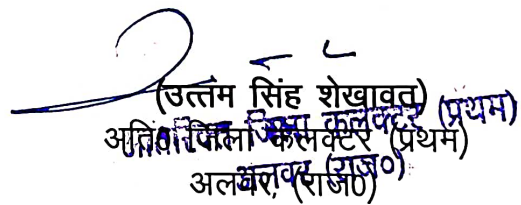 (उत्तम सिंह शेखावत)
अति० जिला कलक्टर (प्रथम)
अलवर (राज०)
अतिरिक्त जिला कलक्टर (प्रथम)
अलवर (राज०)